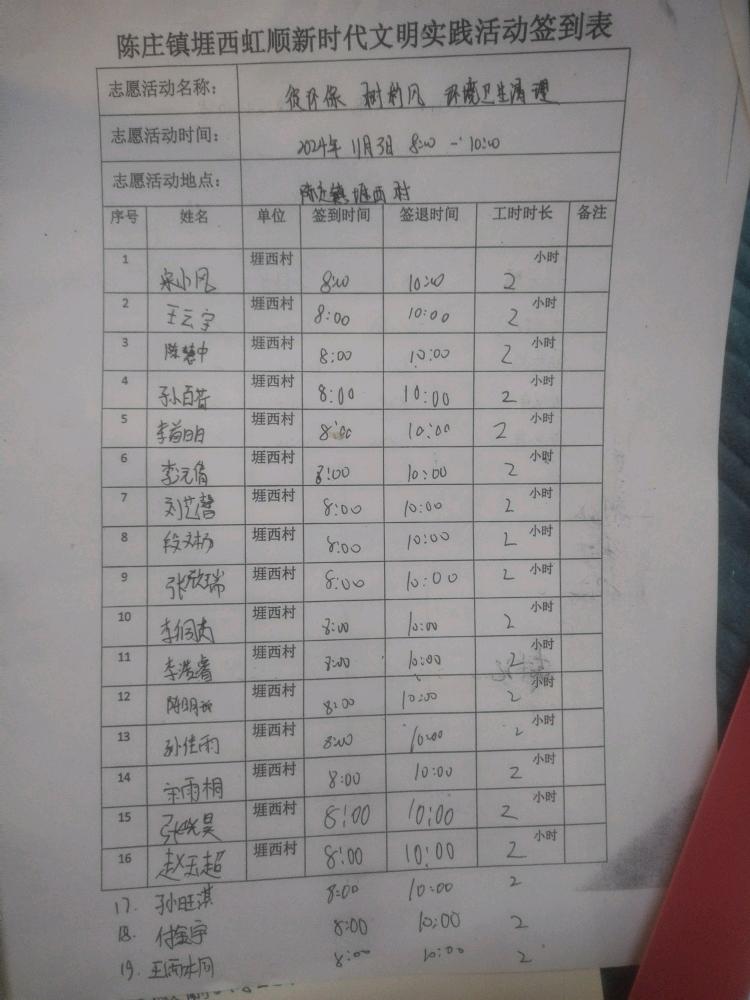 陈庄镇堐西虹顺新时代文明实践活动签到表
志愿活动名称： 促环保 树新风 环境卫生清理
志愿活动时间： 2024年11月3日 8:00 - 10:00
志愿活动地点： 陈庄镇堐西村
序号 姓名 单位 签到时间 签退时间 工时时长 备注
1 宋小风 堐西村 8:00 10:00 2 小时
2 王云宇 堐西村 8:00 10:00 2 小时
3 陈慧中 堐西村 8:00 10:00 2 小时
4 孙百苔 堐西村 8:00 10:00 2 小时
5 李 堐西村 8:00 10:00 2 小时
6 李元倩 堐西村 8:00 10:00 2 小时
7 刘艺馨 堐西村 8:00 10:00 2 小时
8 段文杨 堐西村 8:00 10:00 2 小时
9 张欣瑞 堐西村 8:00 10:00 2 小时
10 李 堐西村 8:00 10:00 2 小时
11 李浩睿 堐西村 8:00 10:00 2 小时
12 陈明 堐西村 8:00 10:00 2 小时
13 孙佳雨 堐西村 8:00 10:00 2 小时
14 宋雨桐 堐西村 8:00 10:00 2 小时
15 张晓昊 堐西村 8:00 10:00 2 小时
16 赵玉超 堐西村 8:00 10:00 2 小时
17. 孙旺淇 8:00 10:00 2
18. 付金宇 8:00 10:00 2
19. 王雨水同 8:00 10:00 2